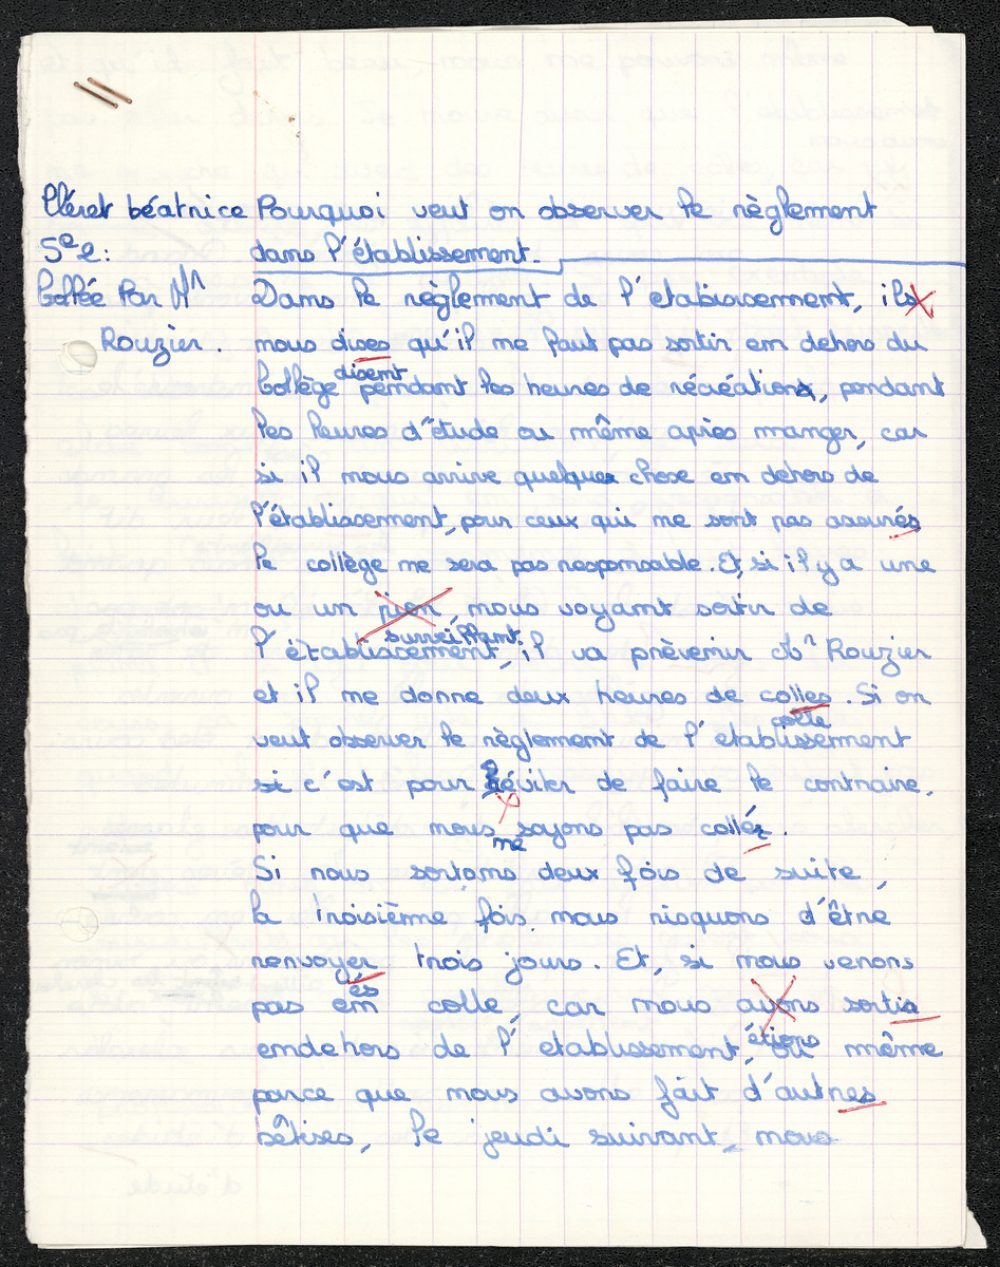 Cléret béatrice Pourquoi veut on observer le règlement
5e 2: dans l'établissement.
Collée Par Mr Dans le règlement de l'etablissement, ils
Rouzier. nous dises qu'il ne faut pas sortir em dehors du
disent
Collège pendant les heures de récréations, pendant
les heures d'étude ou même après manger, car
si il nous arrive quelques chose em dehors de
l'établissement, pour ceux qui ne sont pas assurés
le collège ne sera pas responsable. Et, si il y a une
ou un pion, nous voyant sortir de
surveillant
l'établissement, il va prèvenir Mr Rouzier
et il me donne deux heures de colles. Si on
colle
veut observer le règlement de l'etablissement
si c'est pour éviter de faire le contraire,
pour que nous soyons pas collés.
ne
Si nous sortons deux fois de suite,
la troisième fois nous risquons d'être
renvoyer trois jours. Et, si nous venons
és
pas em colle, car nous avons sortis
étions
endehors de l'etablissement, ou même
parce que nous avons fait d'autres
bêtises, le jeudi suivant, nous